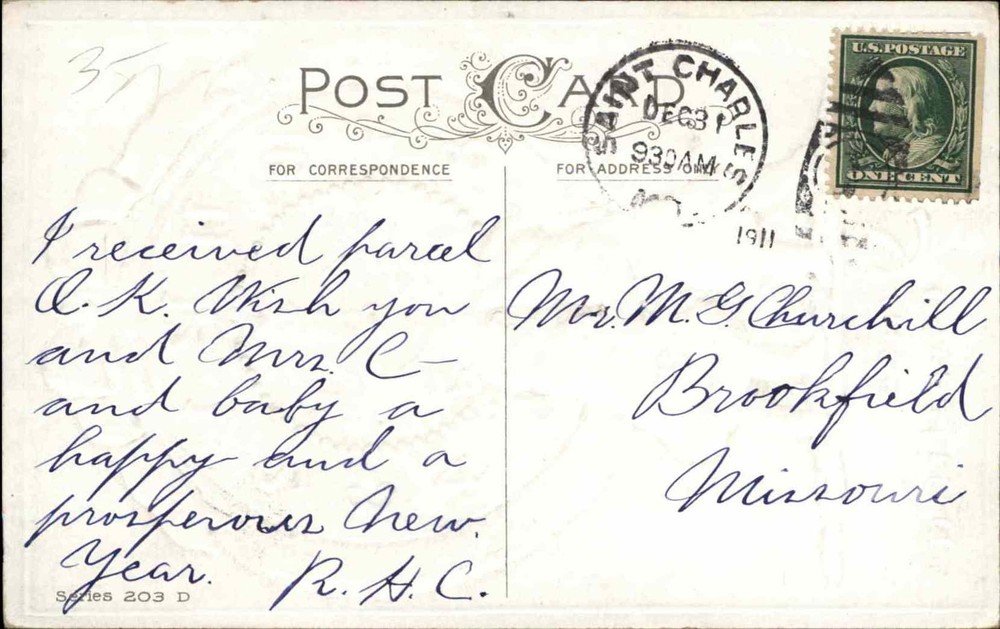 35
POST CARD
FOR CORRESPONDENCE
FOR ADDRESS ONLY
SAINT CHARLES
DEC 31
930 AM
1911
U.S. POSTAGE
ONE CENT
I received parcel
O.K. Wish you
and Mrs. C—
and baby a
happy and a
prosperous New
Year.
R. H. C.
Mr. M. G. Churchill
Brookfield
Missouri
Series 203 D